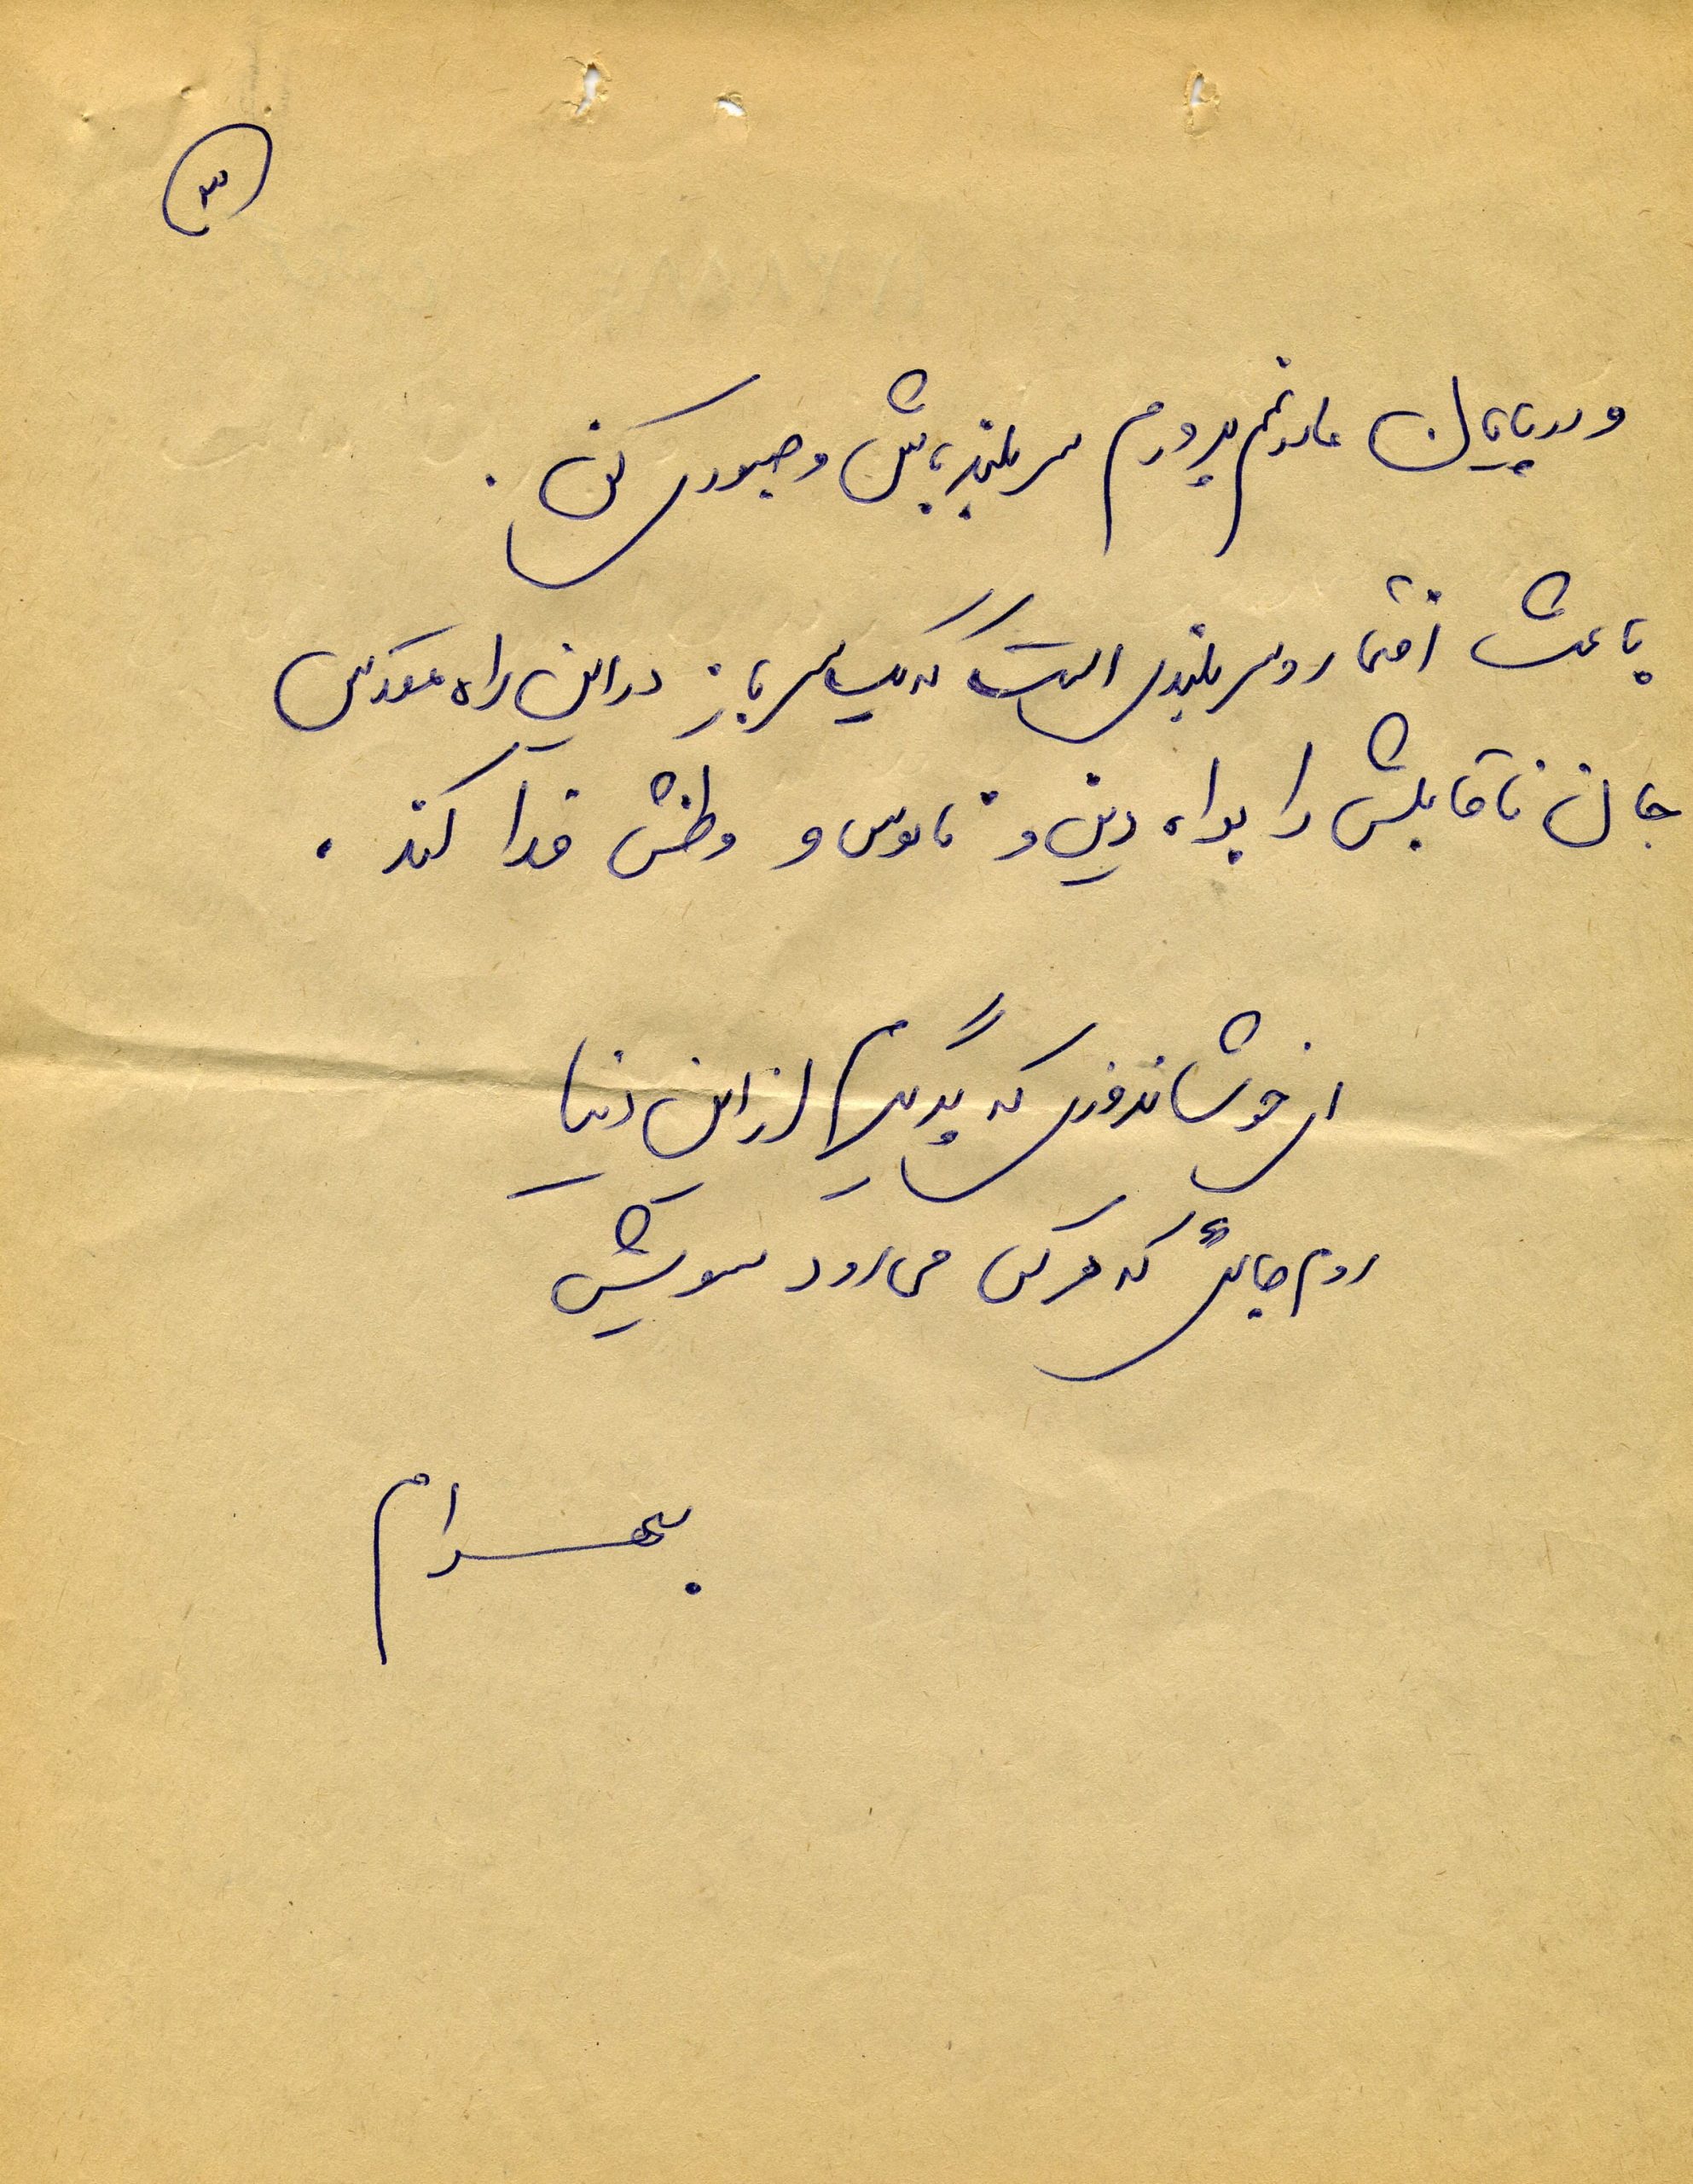 ۳
و در پایان مادرم پدرم سربلند باش و صبوری کن .
باعث افتخار و سربلندی است که یک سرباز در این راه مقدس
جان ناقابلش را براه دین و ناموس و وطنش فدا کند .
ای خوشا روزی که پر گیرم از این دنیا
روم جائی که هر کس می رود سویش
بهرام